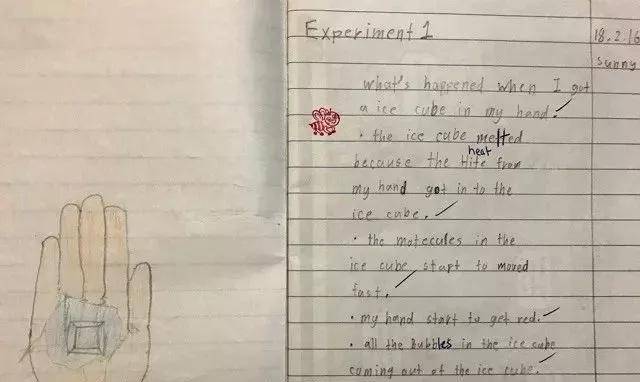 Experiment 1
18.2.16
sunny
what's happened when I got
a ice cube in my hand.
• the ice cube melted
heat
because the Hite from
my hand got in to the
ice cube.
• the molecules in the
ice cube start to moved
fast.
• my hand start to get red.
• all the Bubbles in the ice cube
coming out of the ice cube.